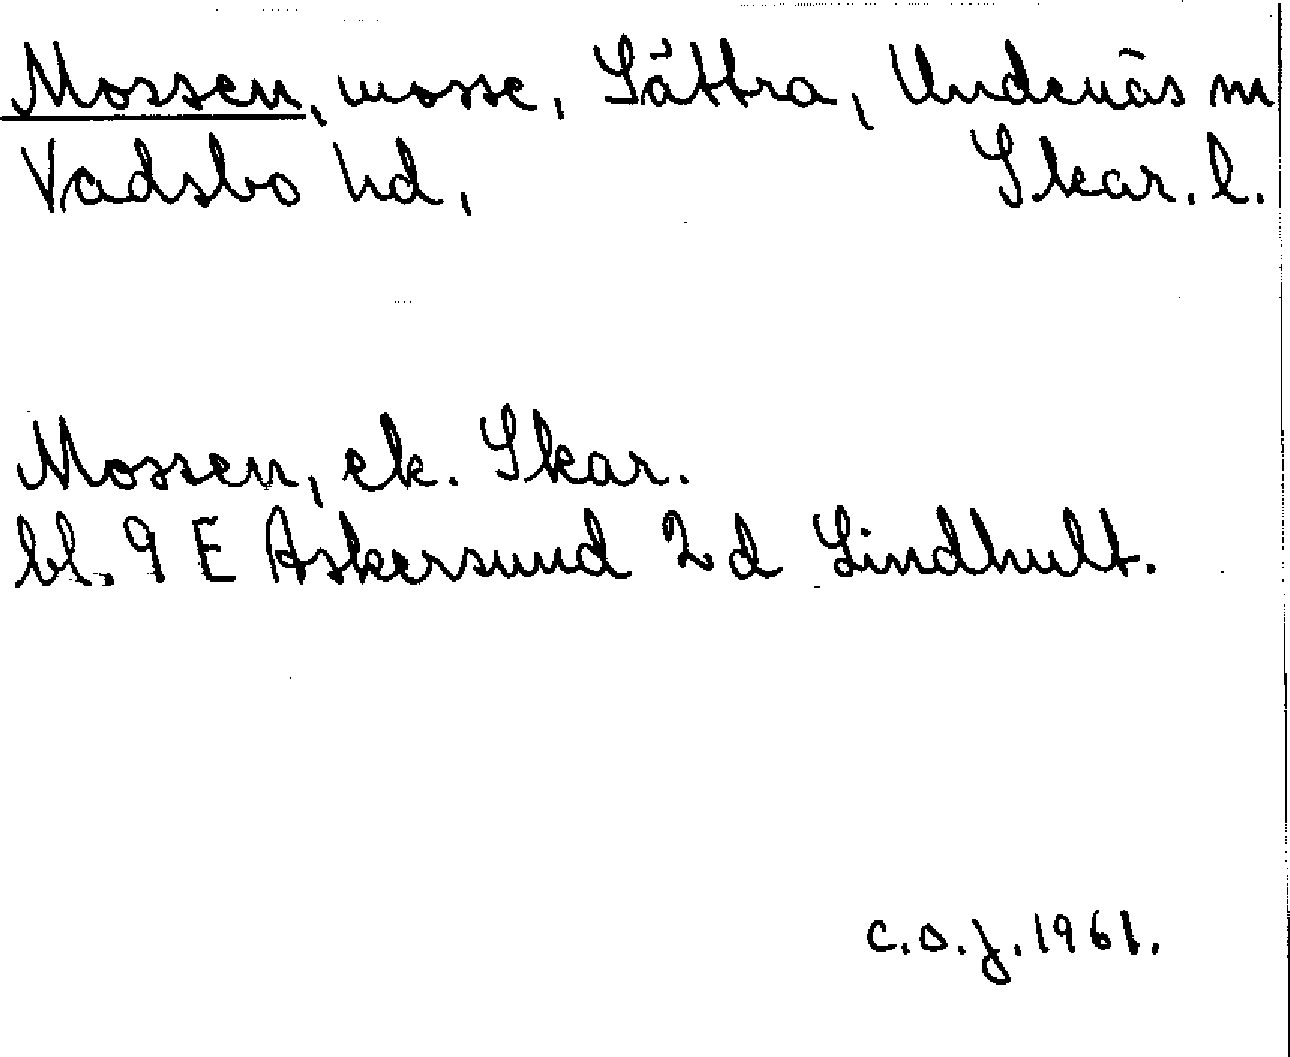 Mossen, mosse, Sättra, Undenäs m
Vadsbo hd, Skar. l.
Mossen, ek. Skar.
bl. 9 E Askersund 2 d Lindhult.
C.O.J. 1961.